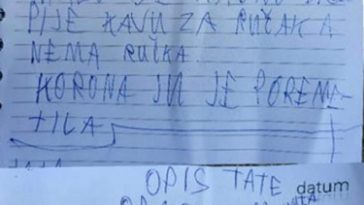 PIJE KAVU ZA RUČAK A
NEMA RUČKA.
KORONA IM JE POREME-
TILA
OPIS TATE
datum